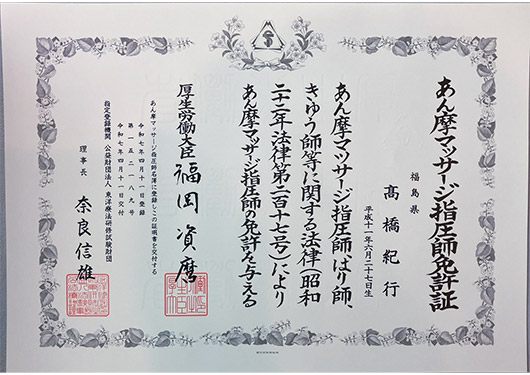 あん摩マッサージ指圧師免許証
福島県
髙橋紀行
平成十一年六月二十七日生
あん摩マツサージ指圧師、はり師、
きゆう師等に関する法律(昭和
二十二年法律第二百十七号)により
あん摩マッサージ指圧師の免許を与える
厚生労働大臣 福岡資麿
あん摩マッサージ指圧師名簿に登録しこの証明書を交付する
令和七年四月十一日登録
第一五二一八九号
令和七年四月十一日交付
指定登録機関 公益財団法人 東洋療法研修試験財団
理事長 奈良信雄